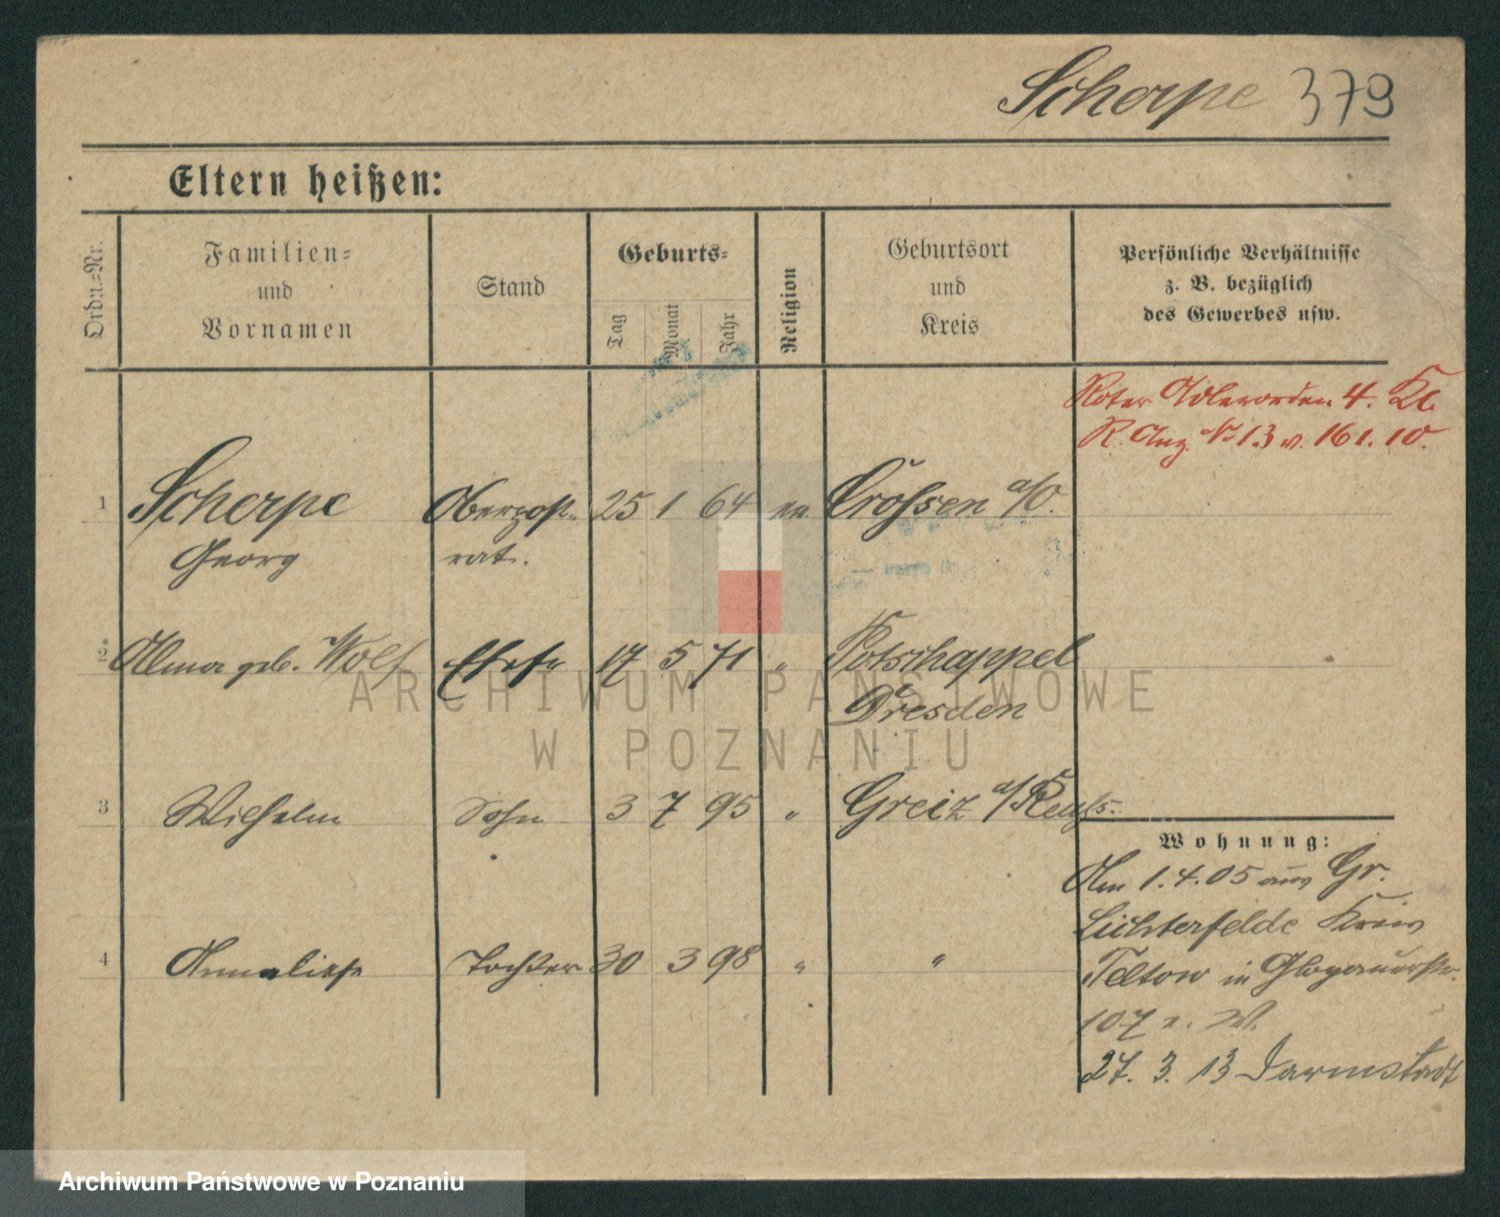 Scherpe 379
Eltern heißen:
Ordn.-Nr.
Familien-
und
Vornamen
Stand
Geburts-
Tag
Monat
Jahr
Religion
Geburtsort
und
Kreis
Persönliche Verhältnisse
z. B. bezüglich
des Gewerbes usw.
Roter Adlerorden 4. Kl.
R. Anz. No 13 v. 16 1. 10.
1 Scherpe Oberpost- 25 1 64 ev. Crossen a/O.
Georg rat.
2 Alma geb. Wolf Ehefr 17 5 71 " Potschappel
Dresden
3 Wilhelm Sohn 3 7 95 " Greiz a/Reuß.
Wohnung:
Am 1.4.05 aus Gr.
Lichterfelde Kreis
4 Anneliese Tochter 30 3 98 " "
Teltow in Glogauerstr.
107 z. W.
27. 3. 13 Darmstadt
ARCHIWUM PAŃSTWOWE
W POZNANIU
Archiwum Państwowe w Poznaniu